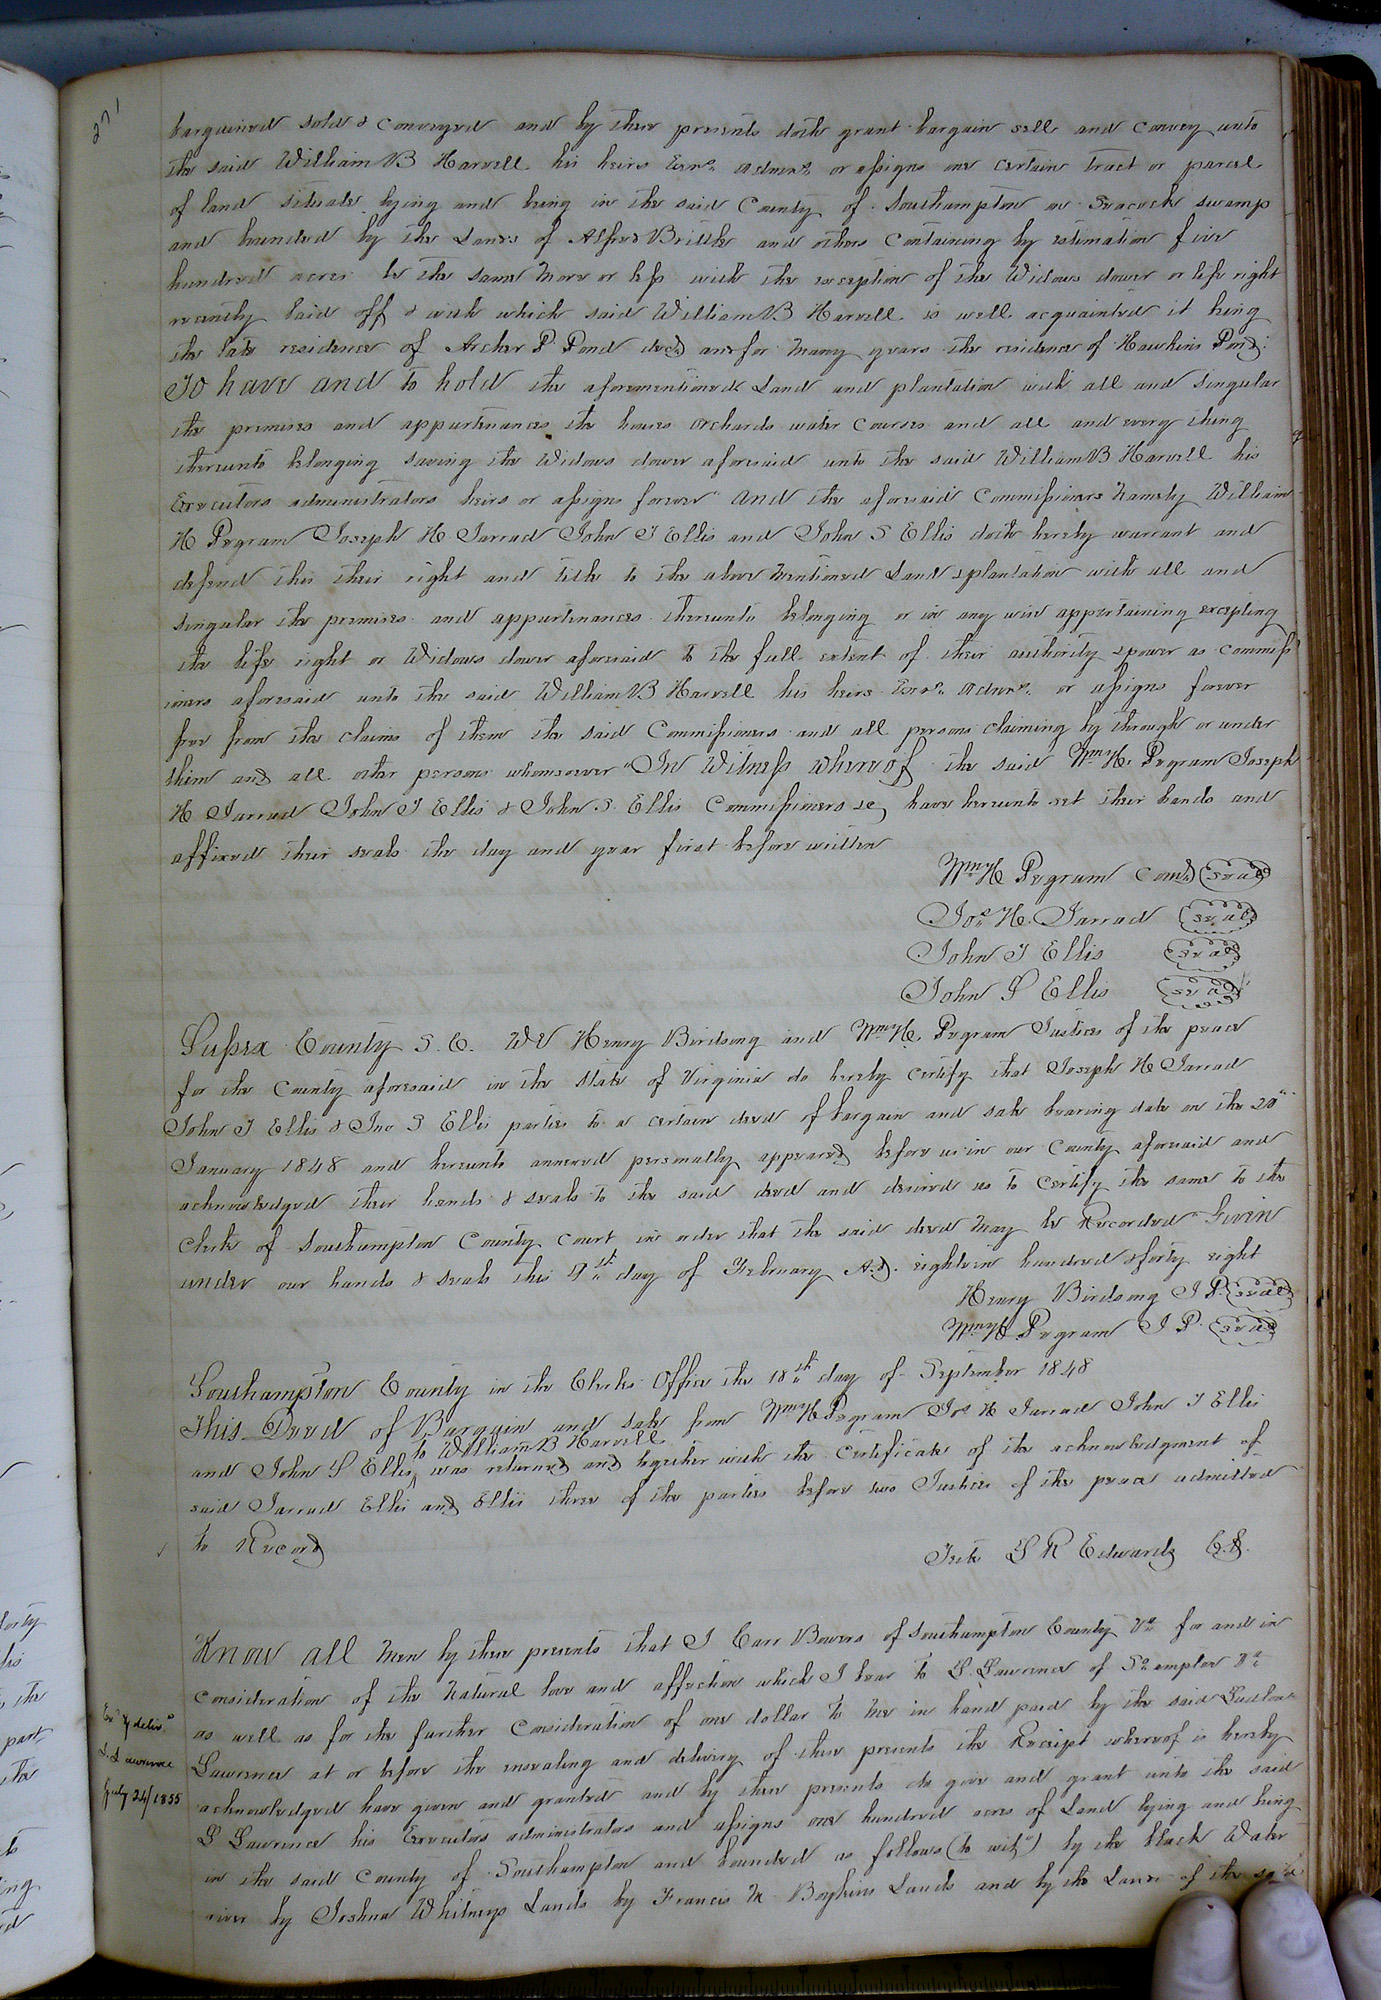 271
bargained sold & conveyed and by these presents doth grant bargain sell and convey unto
the said William B Harvell his heirs Exrs. Admrs. or assigns one certain tract or parcel
of land situate lying and being in the said County of Southampton on Seacock swamp
and bounded by the Lands of Alfred Brittle and others Containing by estimation five
hundred acres be the same more or less with the exception of the Widows dower or life right
recently laid off & with which said William B Harvell is well acquainted it being
the late residence of Archer P Pond decd and for many years the residence of Hawkins Pond:
To have and to hold the aforementioned Land and plantation with all and singular
the premises and appurtenances the houses orchards water Courses and all and every thing
thereunto belonging saving the Widows dower aforesaid unto the said William B Harvell his
Executors administrators heirs or assigns forever" And the aforesaid Commissioners Namely William
H Pegram Joseph H Jarrad John T Ellis and John S Ellis doth hereby warrant and
defend this their right and title to the above mentioned Land & plantation with all and
singular the premises and appurtenances thereunto belonging or in any wise appertaining excepting
the life right or Widows dower aforesaid to the full extent of their authority & power as commiss
ioners aforesaid unto the said William B Harvell his heirs Exrs. Admrs. or assigns forever
free from the claims of them the said Commissioners and all persons claiming by through or under
them and all other persons whomsoever "In Witness whereof the said Wm H. Pegram Joseph
H Jarrad John T Ellis & John S. Ellis Commissioners &c, have hereunto set their hands and
affixed their seals the day and year first before written
Wm H Pegram Comd seal
Jos. H. Jarrad seal
John T Ellis seal
John S Ellis seal
Sussex County S. C. We Henry Birdsong and Wm H. Pegram Justices of the peace
for the County aforesaid in the State of Virginia do hereby certify that Joseph H Jarrad
John T Ellis & Jno S Ellis parties to a certain deed of bargain and sale bearing date on the 20"
January 1848 and hereunto annexed personally appeared before us in our County aforesaid and
acknowledged their hands & seals to the said deed and desired us to Certify the same to the
Clerk of Southampton County Court in order that the said deed May be Recorded" Given
under our hands & seals this 9th day of February A.D. eighteen hundred & forty eight
Henry Birdsong J P. seal
Wm H Pegram J P. seal
Southampton County in the Clerks Office the 18th day of September 1848
This Deed of Bargain and sale from Wm H Pegram Jos H Jarrad John T Ellis
to William B Harvell
and John S Ellis was returned and together with the Certificate of the acknowledgment of
said Jarrad Ellis and Ellis three of the parties before two Justices of the peace admitted
to Record
Teste L R Edwards C.S.
Know all Men by these presents that I Carr Bowers of Southampton County Va for and in
consideration of the Natural love and affection which I bear to L. Lawrence of So ampton Va
as well as for the further Consideration of one dollar to me in hand paid by the said
Lawrence at or before the ensealing and delivery of these presents the Receipt whereof is hereby
acknowledged have given and granted and by these presents do give and grant unto the said
L Lawrence his Executors administrators and assigns one hundred acres of Land lying and being
in the said County of Southampton and bounded as follows (to wit") by the black Water
river by Joshua Whitneys Lands by Francis M Boykins Lands and by the Lands of the
Exd & delivd.
L. Lawrence
July 24/1855